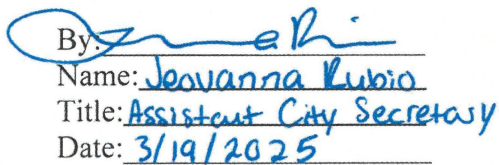 By:
Name: Jeovanna Rubio
Title: Assistant City Secretary
Date: 3/19/2025